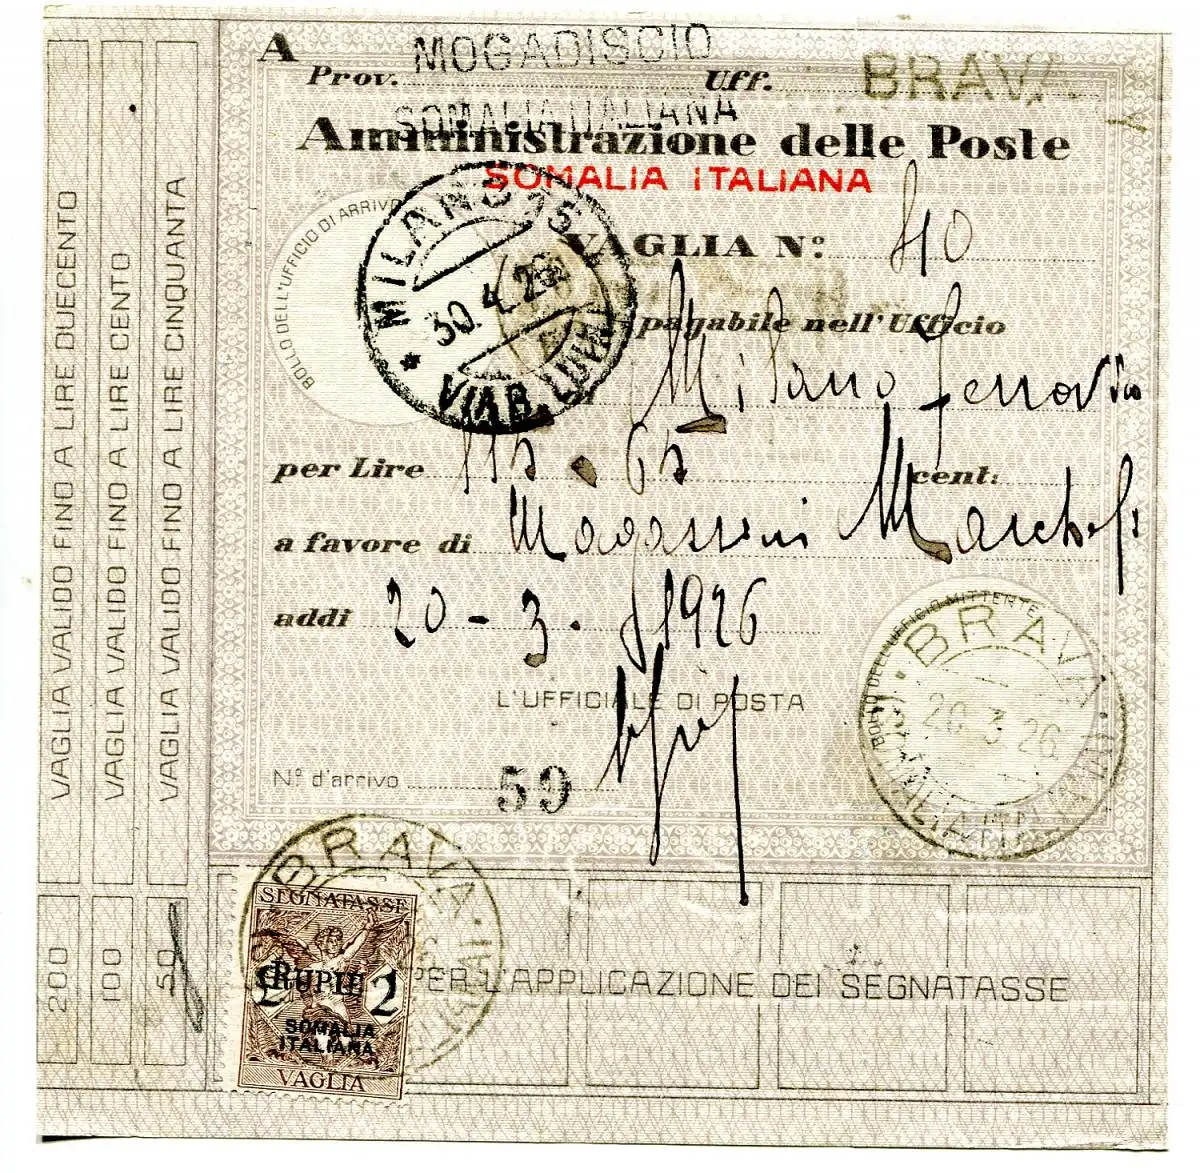 A
MOGADISCIO
Prov. Uff. BRAVA
SOMALIA ITALIANA
Amministrazione delle Poste
SOMALIA ITALIANA
BOLLO DELL'UFFICIO DI ARRIVO
MILANO 15
30.4.26
VAGLIA N: 410
pagabile nell'Ufficio
Milano Ferrovia
per Lire 115.65 cent:
a favore di Magazzini
addi 20-3-1926
L'UFFICIALE DI POSTA
Nº d'arrivo 59
BOLLO DELL'UFFICIO MITTENTE
BRAVA
20.3.26
VAGLIA VALIDO FINO A LIRE DUECENTO
VAGLIA VALIDO FINO A LIRE CENTO
VAGLIA VALIDO FINO A LIRE CINQUANTA
200
100
50
BRAVA
SEGNATASSE
RUPIE 2
SOMALIA
ITALIANA
VAGLIA
PER L'APPLICAZIONE DEI SEGNATASSE